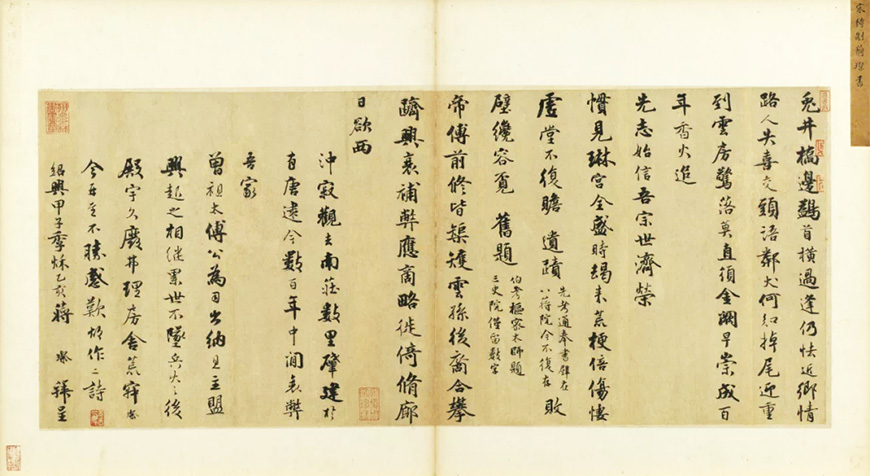 兔井橋邊鷁首橫過逢仍怯近鄉情
路人失喜交頭語鄰犬何知掉尾迎重
到雲房驚落莫直須金闕早崇成百
年香火追
先志始信吾宗世濟榮
慣見琳宮全盛時朅來荒梗倍傷悽
虛堂不復瞻 遺蹟 先考通奉書 在
八蔣院今不復在 敗
壁纔容覓 舊題 伯考樞密太師題
三史院僅留數字
帝傅前修皆矩矱雲孫後裔合攀
躋興衰補弊應商略徙倚脩廊
日欲西
沖寂觀去南莊數里肇建於
有唐逮今數百年中間衰弊
吾家
曾祖太傅公為司出納且主盟
興起之相繼累世不墜兵火之後
殿宇久廢井理房舍荒穢璨
今再至不勝感歎輒作二詩
紹興甲子季秋乙亥蔣 璨 拜呈